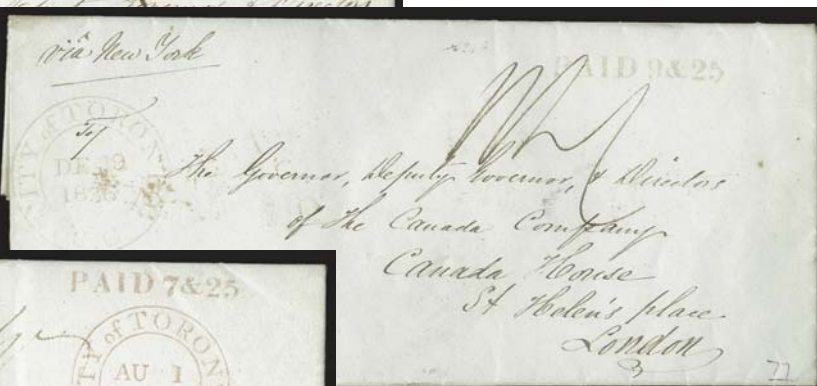 via New York
PAID 9&25
CITY of TORON
DE 19
1836
To
The Governor, Deputy Governor, & Directors
of the Canada Company
Canada House
St Helen's place
London
77
PAID 7&25
TY of TORON
AU 1